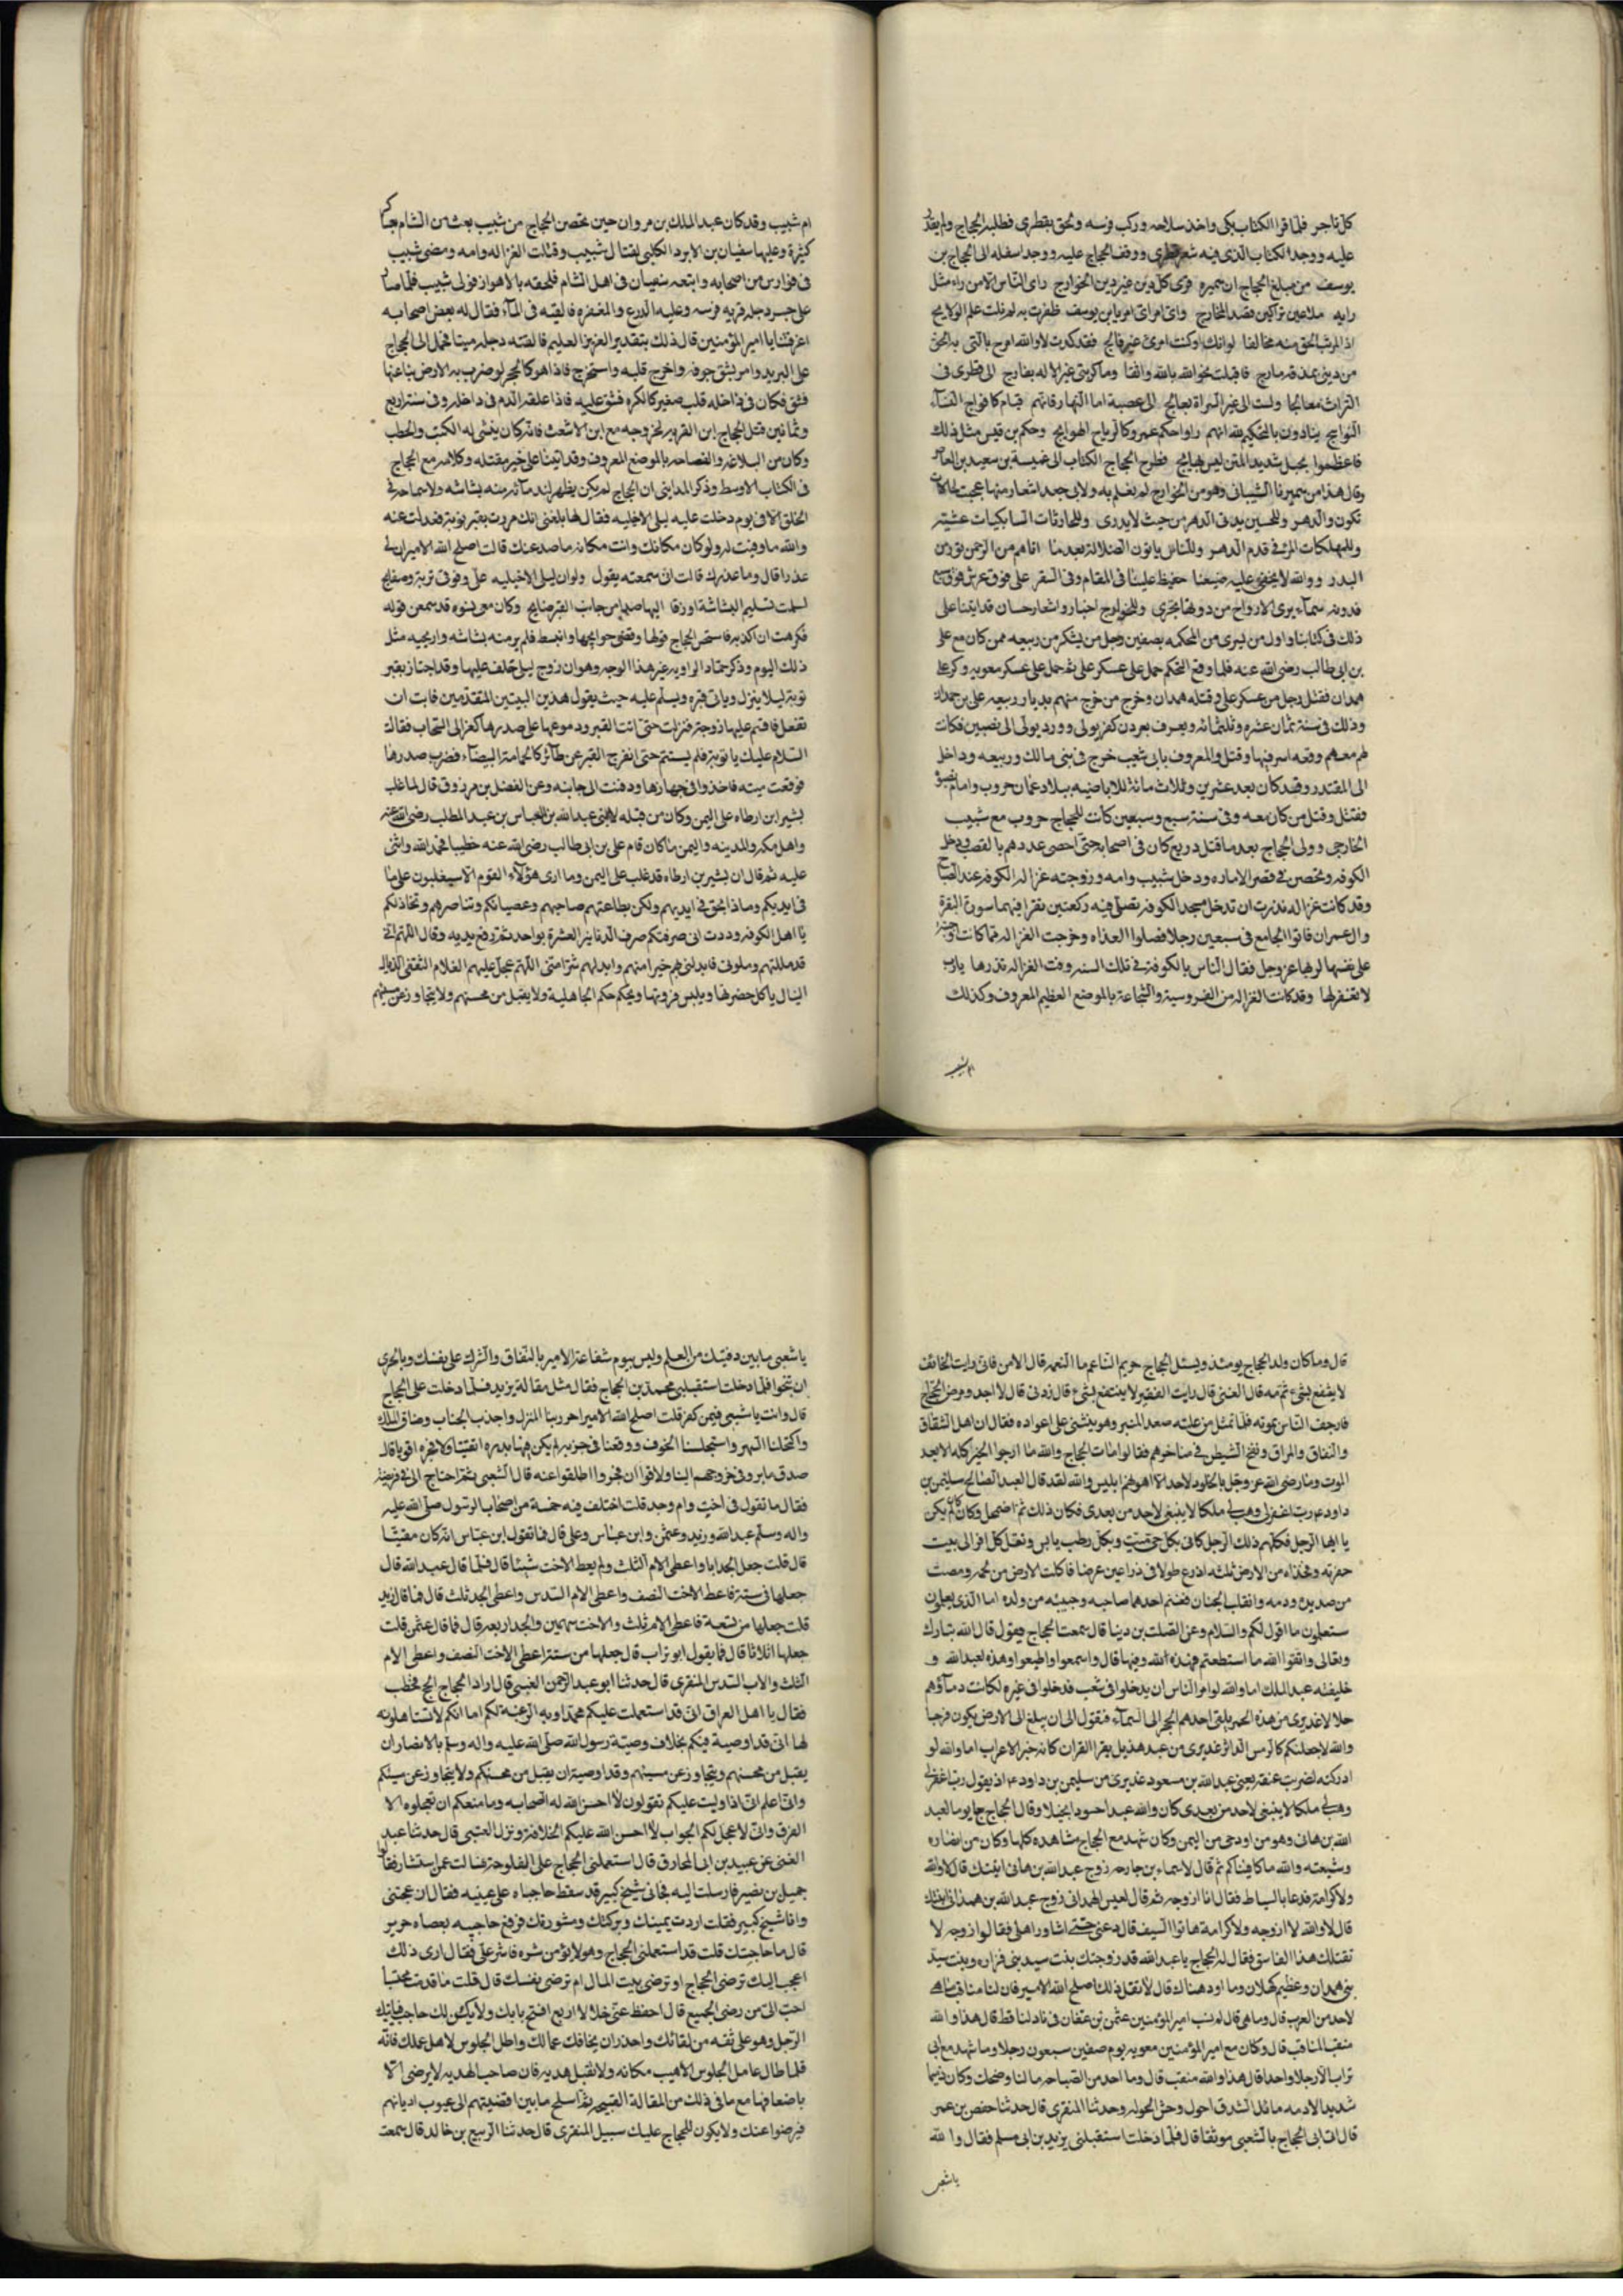 كل تاجر فلما قرا الكتاب بكى واخذ سلاحه وركب فرسه ولحق بقطرى فطلبه الحجاج ولم يقدر
عليه ووجد الكتاب الذى فيه شعر قطرى ووقف الحجاج عليه ووجد اسفله الى الحجاج بن
يوسف من مبلغ الحجاج ان سميره قرى كل دين غير دين الخوارج راى الناس الا من راء مثل
رايه ملاعين تراكين قصد المخارج واى امرائ امر يا بن يوسف ظفرت به لم نلت علم الولايج
اذا لرايت الحق منه مخالفا لوانك اوكنت امرئ غير فالج فقد كدت لاوالله امرج بالتى
من دينى بمذقه مارج فاقبلت نحو الله بالله واثقا وماكربتى غير الاله بفارج الى قطرى فى
التراث معالجا ولست الى غير السراة بعالج الى عصبة اما النهار فانهم قيام كافواج النساء
النوايح ينادون بالتحكيم لله انهم راوا حكم عمرو كالرياح الهوايج وحكم بن قيس مثل ذلك
فاعظموا بحبل شديد المتن ليس بناهج فطرح الحجاج الكتاب الى عنبسة بن سعيد بن العاص
وقال هذا من سميرنا الشيبانى وهو من الخوارج لم نعلم به ولابى جعد اشعار منها عجبت لحالات
تكون والدهر وللحسين ياتى الدهر من حيث لا يدرى وللحادثات السابكيات عشيته
وللمهلكات المرء فى قدم الدهر وللناس ياتون الضلالة بعدما اتاهم من الرحمن نور من
البدر ووالله لا يخفى عليه صنيعنا حفيظ علينا فى المقام وفى السفر على فوق عرش فوق سبع
فدونه سماء يرى الارواح من دونها تجرى وللخوارج اخبار واشعار حسان قد اتينا على
ذلك فى كتابنا واول من يسرى من المحكمه بصفين رجل من يشكر من ربيعه ممن كان مع على
بن ابى طالب رضى الله عنه فلما وقع التحكم حمل على عسكر على ثم حمل على عسكر معويه وكر على
همدان فقتل رجل من عسكر على وقتله همدان وخرج من خرج منهم بديار ربيعه على بن حمدان
وذلك فى سنة ثمان عشره وثلثمائه ويعرف بعردن كفر بولى وورد يولى الى نصيبين فكانت
لهم معهم وقعه اسر فيها وقتل والمعروف بابى شعيب خرج فى بنى مالك وربيعه وداخل
الى المقتدر وقد كان بعد عشرين وثلاث مائة للاباضيه ببلاد عمان حروب وامام نصبوه
فقتل وقتل من كان معه وفى سنة سبع وسبعين كانت للحجاج حروب مع شبيب
الخارجى وولى الحجاج بعد ما قتل ذريع كان فى اصحابه حتى احصى عددهم بالقصب ودخل
الكوفه وتحصن فى قصر الاماره ودخل شبيب وامه وزوجته غزاله الكوفه عند الصباح
وقد كانت غزاله نذرت ان تدخل مسجد الكوفه نصلى فيه ركعتين تقرا فيهما سورة البقرة
وال عمران فاتوا الجامع فى سبعين رجلا فصلوا الغداه وخرجت الغزاله مما كانت اوجبته
على نفسها لربها عز وجل فقال الناس بالكوفة فى تلك السنه وفت الغزاله نذرها يارب
لا تغفر لها وقد كانت الغزاله من الفروسية والشجاعة بالموضع العظيم المعروف وكذلك
ام شبيب
ام شبيب وقد كان عبد الملك بن مروان حين تحصن الحجاج من شبيب بعث من الشام بعساكر
كثيرة وعليها سفيان بن الابرد الكلبى لقتال شبيب وقتلت الغزاله وامه ومضى شبيب
فى فوارس من اصحابه واتبعه سفيان فى اهل الشام فلحقه بالاهواز فولى شبيب فلما صار
على جسر دجله قربه فرسه وعليه الدرع والمغفر فالقته فى الماء فقال له بعض اصحابه
اغرقتنا يا امير المؤمنين قال ذلك بتقدير العزيز العليم فالقته دجله ميتا فحمل الى الحجاج
على البريد وامر بشق جوفه واخرج قلبه واستخرج فاذا هو كالحجر لو ضرب به الارض نبا عنها
فشق فكان فى داخله قلب صغير كالكره فشق عليه فاذا علقه الدم فى داخله وفى سنة اربع
وثمانين قتل الحجاج ابن القريه لخروجه مع ابن الاشعث فانه كان ينشى له الكتب والخطب
وكان من البلاغه والفصاحه بالموضع المعروف وقد اتينا على خبر مقتله وكلامه مع الحجاج
فى الكتاب الاوسط وذكر المداينى ان الحجاج لم يكن يظهر لندمائه منه بشاشه ولا سماحه فى
الخلق الا فى يوم دخلت عليه ليلى الاخيليه فقال لها بلغنى انك مررت بقبر توبه فعدلت عنه
والله ما وفيت له ولو كان مكانك وانت مكانه ما صد عنك قالت اصلح الله الامير ان لى
عذرا قال وما عذرك قالت انى سمعته يقول ولو ان ليلى الاخيليه على وفوقى تربة وصفايح
لسلمت تسليم البشاشة او زقا اليها صدى من جانب القبر صايح وكان معى نسوه قد سمعن قوله
فكرهت ان اكذبه فاستحسن الحجاج قولها وقضى حوايجها وانبسط فلم ير منه بشاشه واريحيه مثل
ذلك اليوم وذكر حماد الراويه غير هذا الوجه وهو ان زوج ليلى حلف عليها وقد اجتاز بقبر
توبه ليلا ينزل وياتى قبره ويسلم عليه حيث يقول هذين البيتين المقدمين فابت ان
تفعل فاقسم عليها زوجه فنزلت حتى اتت القبر ودموعها على صدرها كغزالى السحاب فقالت
السلام عليك يا توبة فلم يستتم حتى انفرج القبر عن طائر كالحمامة البيضاء فضرب صدرها
فوقعت ميته فاخذوا فى جهازها ودفنت الى جانبه وعن الفضل بن مرزوق قال لما غلب
بشير ابن ارطاه على اليمن وكان من قتله لابنى عبد الله بن العباس بن عبد المطلب رضى الله عنه
واهل مكه والمدينه واليمن ما كان قام على بن ابى طالب رضى الله عنه خطيبا فحمد الله واثنى
عليه ثم قال ان بشير بن ارطاه قد غلب على اليمن وما ارى هؤلاء القوم الا سيغلبون على ما
فى ايديكم وماذا بحق فى ايديهم ولكن بطاعتهم صاحبهم وعصيانكم وتناصرهم وتخاذلكم
يا اهل الكوفه وددت انى صرفتكم صرف الدنانير العشرة بواحد ثم رفع يديه وقال اللهم انى
قد مللتهم وملونى فابدلنى بهم خيرا منهم وابدلهم شرا منى اللهم عجل عليهم الغلام الثقفى الذيال
الميال ياكل خضرتها ويلبس فروتها ويحكم حكم الجاهلية ولا يقبل من محسنهم ولا يتجاوز عن مسيئهم
قال وما كان ولد الحجاج يومئذ ويسئل الحجاج حريم الناعم ما النعمه قال الامن فانى رايت الخائف
لا ينتفع بشىء ثم مه قال الغنى قال رايت الفقير لا ينتفع بشىء قال زدنى قال لا اجد ومرض الحجاج
فارجف الناس بموته فلما تمثل من علته صعد المنبر وهو ينثنى على اعواده فقال ان اهل الشقاق
والنفاق والمراق ونفخ الشيطن فى مناخرهم فقالوا مات الحجاج والله ما ارجوا الخير كله الا بعد
الموت وما رضى الله عز وجل بالخلود لاحد الا اهونهم ابليس والله لقد قال العبد الصالح سليمن بن
داود رب اغفرلى وهب لى ملكا لا ينبغى لاحد من بعدى فكان ذلك ثم اضمحل وكان لم يكن
يا ايها الرجل فكلهم ذلك الرجل كانى بكل حى ميت وبكل رطب يابس ونقل كل امرء الى بيت
حفرته وخد له من الارض ثلثه اذرع طولا فى ذراعين عرضا فاكلت الارض من لحمه ومصت
من صديده ودمه وانقلب الجنان فغنم احدهما صاحبه وحبيبه من ولده اما الذى يعلمون
ستعلمون ما اقول لكم والسلام وعن الصلت بن دينا قال سمعت الحجاج فيقول قال الله تبارك
وتعالى واتقوا الله ما استطعتم فهذه الله وفيها قال واسمعوا واطيعوا وهذه لعبد الله و
خليفته عبد الملك اما والله لو امر الناس ان يدخلوا فى شعب فدخلوا فى غيره لكانت دماؤهم
حلالا عذيرى من هذه الحمر يلقى احدهم الحجر الى السماء فتقول الى ان يبلغ الى الارض يكون فرجا
والله لاجعلنكم كالرمس الداثر عذيرى من عبد هذيل يقرا القران كانه خبر الاعراب اما والله لو
ادركته لضربت عنقه يعنى عبد الله بن مسعود عذيرى من سليمن بن داود اذ يقول رب اغفرلى
وهب لى ملكا لا ينبغى لاحد من بعدى كان والله عبدا حسودا بخيلا وقال الحجاج جا يوما لعبد
الله بن هانى وهو من اود حى من اليمن وكان شهد مع الحجاج مشاهده كلها وكان من انصاره
وشيعته والله ما كافيناكم ثم قال لاسماء بن خارجه زوج عبد الله بن هانى ابنتك قال لا والله
ولا كرامه فدعا بالسياط فقال انا ازوجه ثم قال لعيس الهمدانى زوج عبد الله بن همدانى ابنتك
قال لا والله لا ازوجه ولا كرامة هاتوا السيف قال دعنى حتى اشاور اهلى فقالوا زوجه لا
تقتلك هذا الفاسق فقال له الحجاج يا عبد الله قد زوجتك بنت سيد بنى فزاره وبنت سيد
بنى همدان وعظيم كهلان وما اود هناك قال لا تقل ذلك اصلح الله الامير فان لنا مناقب ما هى
لاحد من العرب قال وما هى قال لم نسب امير المؤمنين عثمن بن عفان فى ناد لنا قط قال هذا والله
منقبا لمناقب قال وكان مع امير المؤمنين معويه يوم صفين سبعون رجلا وما شهد مع ابى
تراب الا رجلا واحدا قال هذا والله منقب قال وما احد من الصباحه ما لنا وضحك وكان ذميما
شديد الادمه مائل الشدق احول وحش الحوله وحدثنا المنقرى قال حدثنا حفص بن عمر
قال اتى ابى الحجاج بالشعبى موثقا قال فلما دخلت استقبلنى يزيد بن ابى مسلم فقال والله
يا شعبى
يا شعبى ما بين دفتيك من العلم وليس بيوم شفاعة الامير بالنفاق والشرك على نفسك وبالحرى
ان تنجوا فلما دخلت استقبلنى محمد بن الحجاج فقال مثل مقالة يزيد فلما دخلت على الحجاج
قال وانت يا شعبى فيمن كفر قلت اصلح الله الامير احزن بنا المنزل واجذب الجناب وضاق الملك
واكتحلنا السهر واستجلسنا الخوف ووقعنا فى جزيه لم يكن فيها بررة اتقياء ولا فجره اقويا قال
صدق ما بروا فى خروجهم الينا ولا قوا ان فجروا اطلقوا عنه قال الشعبى ثم احتاج الى فى فريضة
فقال ما تقول فى اخت وام وجد قلت اختلف فيه خمسة من اصحاب الرسول صلى الله عليه
واله وسلم عبد الله وزيد وعثمن وابن عباس وعلى قال فما تقول ابن عباس انه كان مفتيا
قال قلت جعل الجد ابا واعطى الام الثلث ولم يعط الاخت شيئا قال فلما قال عبد الله قال
جعلها فى ستة فاعط الاخت النصف واعطى الام السدس واعطى الجد ثلث قال فما قال زيد
قلت جعلها من تسعة فاعطى الام ثلث والاخت سهمين والجد اربعه قال فما قال عثمن قلت
جعلها اثلاثا قال فما يقول ابو تراب قال جعلها من ستة اعطى الاخت النصف واعطى الام
الثلث والاب السدس المنقرى قال حدثنا ابو عبد الرحمن العبسى قال اراد الحجاج الحج فخطب
فقال يا اهل العراق انى قد استعملت عليكم محمدا وبه الرغبة لكم اما انكم لا تستاهلونه
لها انى قد اوصيه فيكم بخلاف وصية رسول الله صلى الله عليه واله وسلم بالانصار ان
يقبل من محسنهم ويتجاوز عن مسيئهم وقد اوصيته ان يقبل من محسنكم ولا يتجاوز عن مسيئكم
وانى اعلم انى اذا وليت عليكم تقولون لا احسن الله له الصحابه وما منعكم ان تعجلوه الا
الفرق وانى لا عجل لكم الجواب لا احسن الله عليكم الخلافة ونزل العتبى قال حدثنا عبد
الغنى عن عبيد بن ابى المخارق قال استعملنى الحجاج على الفلوجة فسالت عمن استشار فقالوا
جميل بن بصير فارسلت اليه فجانى شيخ كبير قد سقط حاجباه على عينيه فقال ان عجتنى
وانا شيخ كبير فقلت اردت يمينك وبركتك ومشورتك فرفع حاجبيه بعصابه حرير
قال ما حاجتك قلت قد استعملنى الحجاج وهو لا يؤمن شره فاشر على فقال ارى ذلك
اعجب اليك ترضى الحجاج او ترضى بيت المال ام ترضى نفسك قال قلت ما قدت مجتبا
احب الى من رضى الجميع قال احفظ عنى خلالا اربع افتح بابك ولا يكن لك حاجب فياتيك
الرجل وهو على ثقه من لقائك واحذر ان يخافك عمالك واطل الجلوس لاهل عملك فانه
قلما طال عامل الجلوس الا هيب مكانه ولا تقبل هديه فان صاحب الهديه لا يرضى الا
باضعافها مع ما فى ذلك من المقالة القبيحه ثم اسلح ما بين اقضيتهم الى عيوب اديانهم
فيرضوا عنك ولا يكون للحجاج عليك سبيل المنقرى قال حدثنا الربيع بن خالد قال سمعت